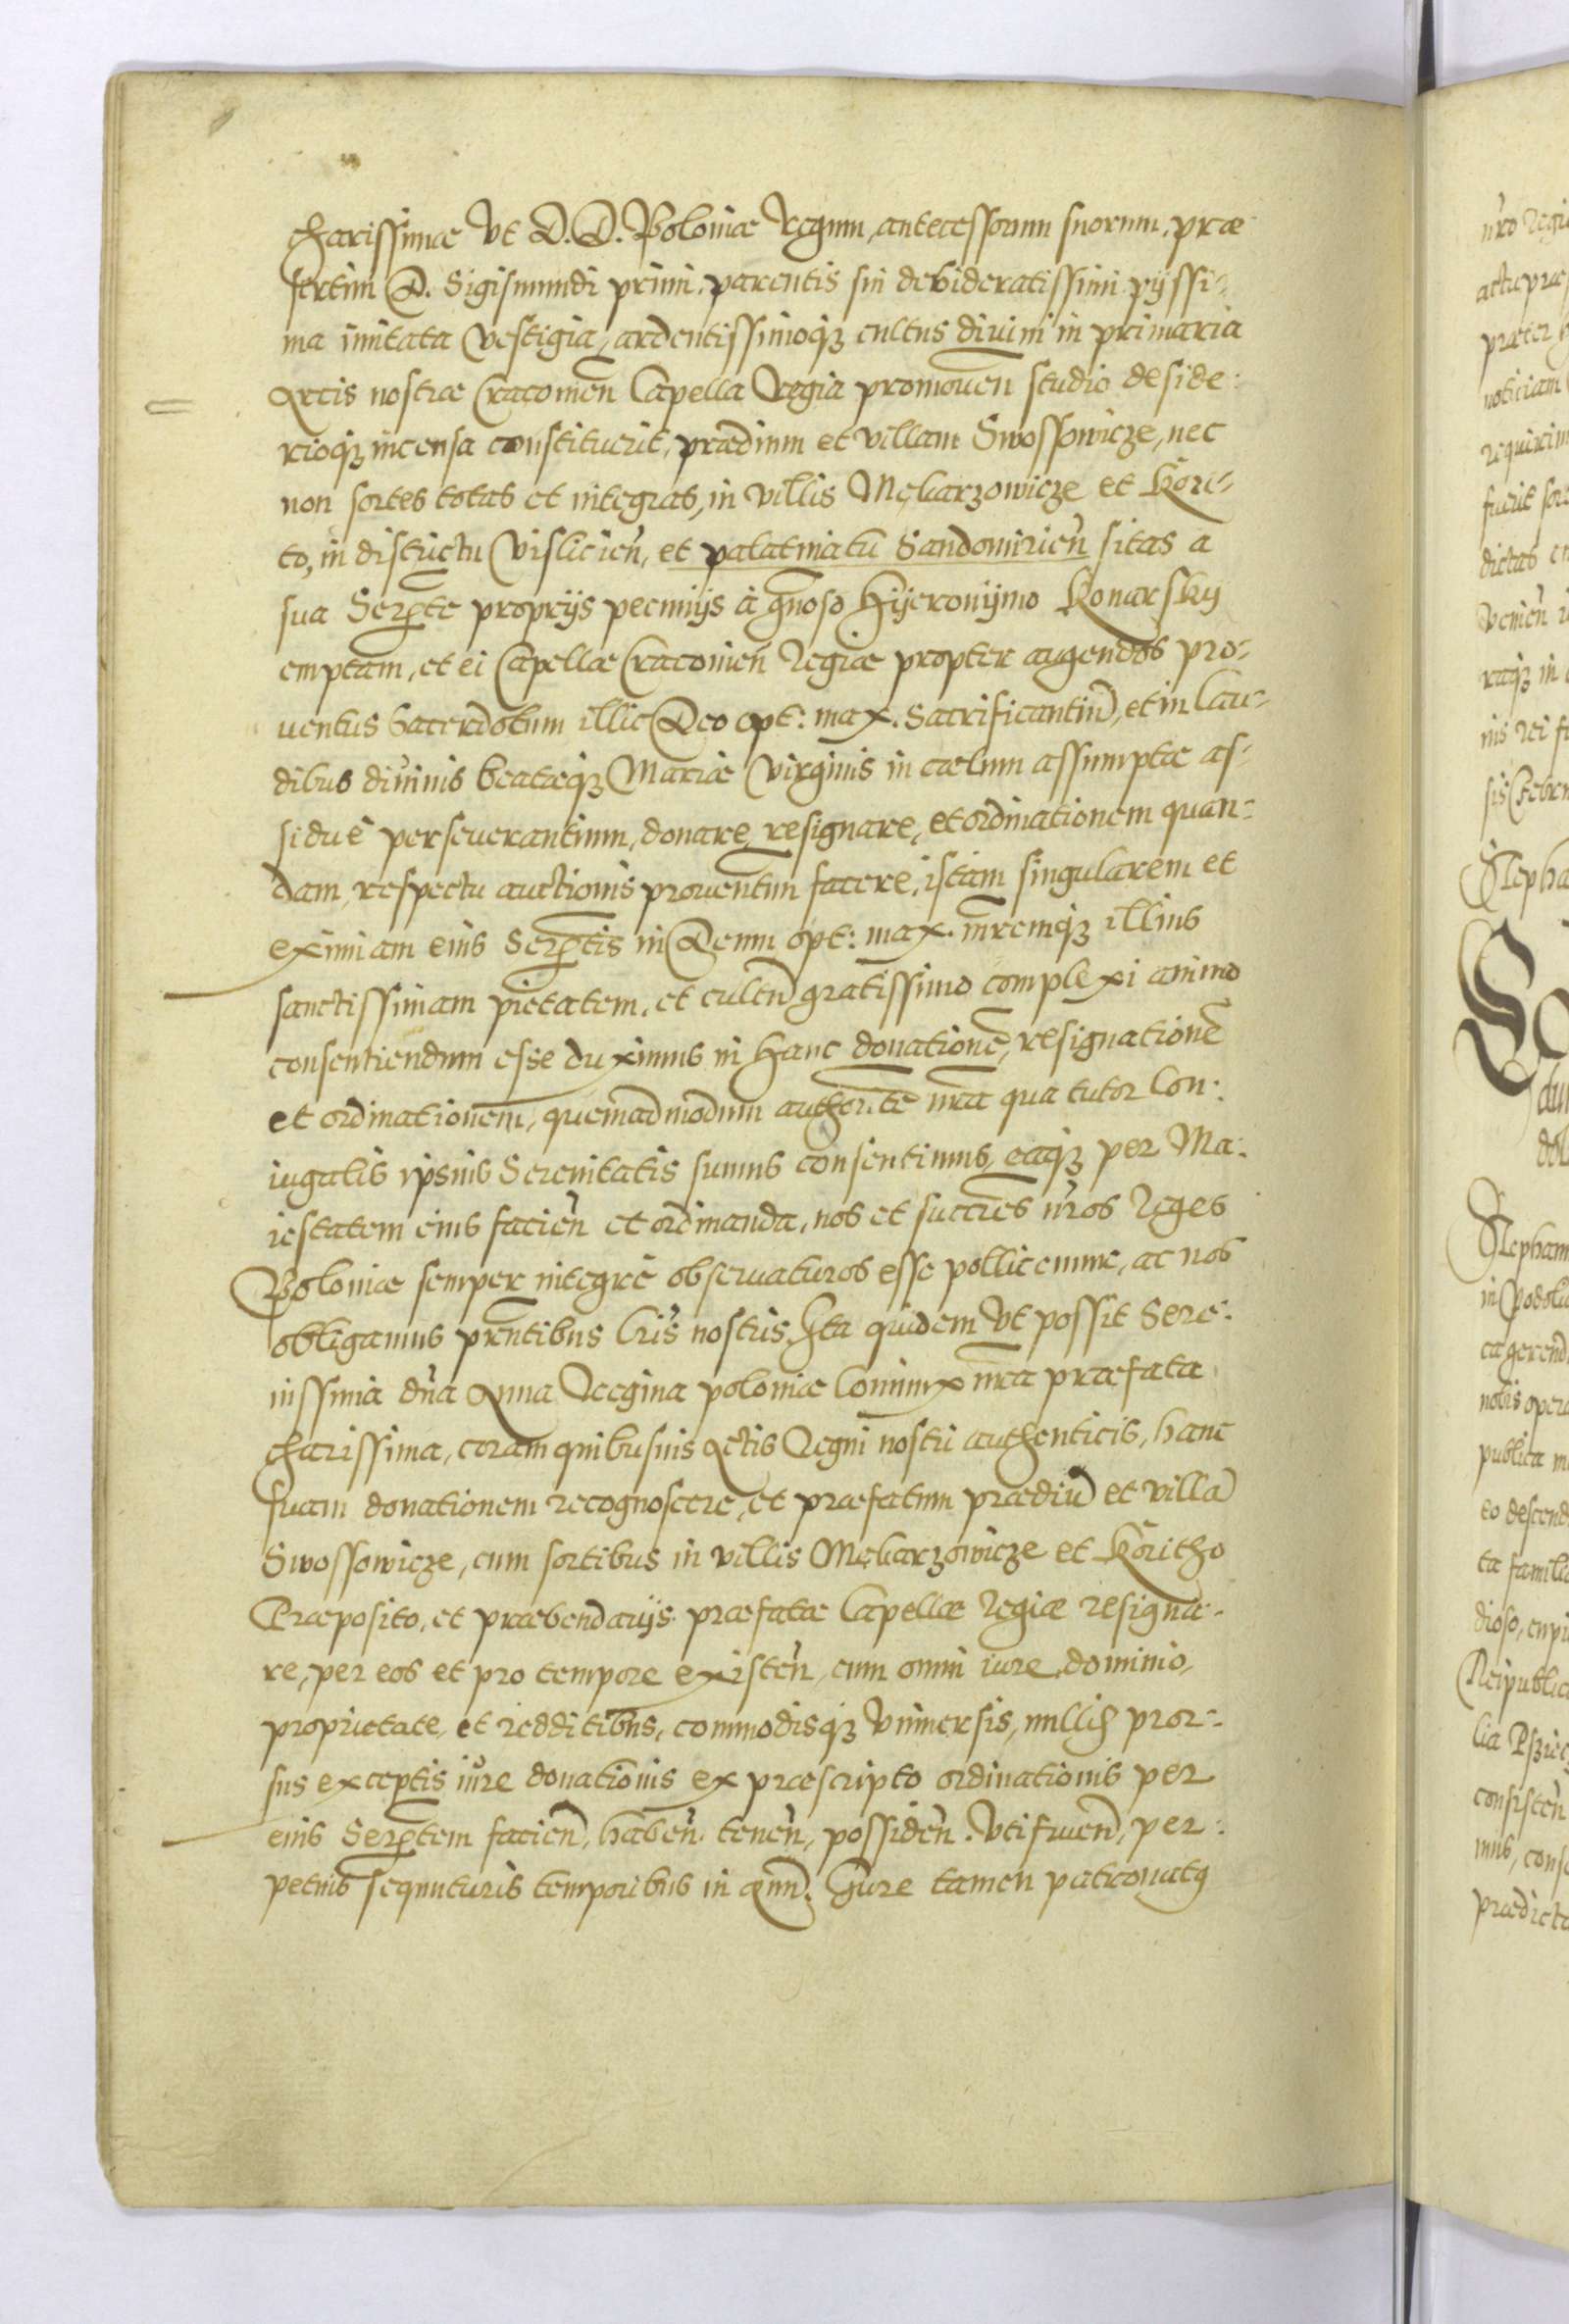 charissimae Vt D. D. Poloniae Regum, antecessorum suorum, prae
sertim D. Sigismundi primi, parentis sui desideratissimi pijssi-
ma imitata vestigia, ardentissimoq3 cultus diuini in primaria
Arcis nostrae Cracouien̄ Capella Regia promouen̄ studio deside-
rioq3 incensa constituerit, praedium et villam Swossowicze, nec
non sortes totas et integras, in villis Mękarzowicze et Kori-
to, in districtu Vislicien̄, et palatinatū Sandomirien̄ sitas a
sua Serēnte proprijs pecunijs à gn̄oso Hijeronijmo Konarskij
emptam, et ei Capellae Cracouien̄ Regiae propter augendos pro-
uentus Sacerdotum illic Deo opt: max. Sacrificantiū, et in lau-
dibus diuinis beataeq3 Mariae Virginis in caelum assumptae as-
siduè perseuerantium, donare, resignare, et ordinationem quan-
dam, respectu auctionis prouentum facere, istam singularem et
eximiam eius Serēntis in Deum opt: max. mr̄emq3 illius
sanctissimam pietatem, et cultū gratissimo complexi animo
consentiendum esse duximus in hanc donationē, resignationē
et ordinationem, quemadmodum authori.te nr̄a qua tutor Con-
iugalis ipsius Serenitatis sumus consentimus, eaq3 per Ma-
iestatem eius facien̄ et ordinanda, nos et succr̄es nr̄os Reges
Poloniae semper integrè obseruaturos esse pollicemur, ac nos
obligamus prn̄tibus lrīs nostris, Ita quidem Vt possit Sere-
nissima dn̄a Anna Regina poloniae Coniunx nr̄a praefata
charissima, coram quibusuis Actis Regni nostri authenticis, hanc
suam donationem recognoscere, et praefatum praediū et villā
Swossowicze, cum sortibus in villis Mękarzowicze et Koritho
Praeposito, et praebendarijs praefatae Capellae Regiae resigna-
re, per eos et pro tempore existen̄, cum omni iure, dominio,
proprietate, et redditibus, commodisq3 Vniuersis, nullis pror-
sus exceptis iure donationis ex praescripto ordinationis per
eius Serēntem facien̄, haben̄ tenen̄, possiden̄. Vti fruen̄, per-
petuis sequuturis temporibus in aeuū. Iure tamen patronatus